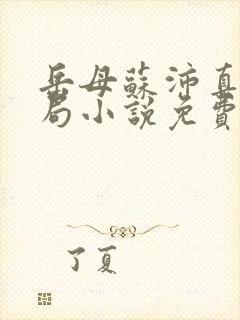 岳母蘇沛真
局小說免費
了夏